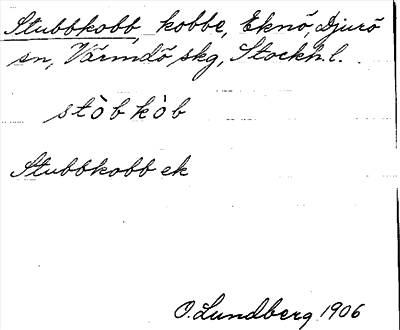 Stubbkobb, kobbe, Eknö, Djurö
sn, Värmdö skg, Stockh. l.
stòbkòb
Stubbkobb ek
O. Lundberg 1906